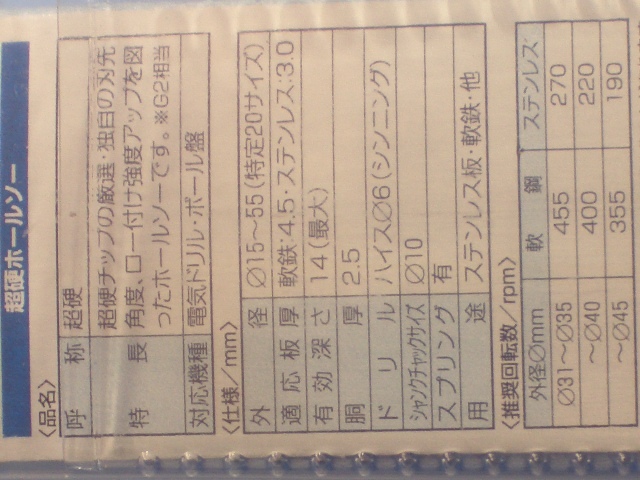 超硬ホールソー
〈品名〉
呼称 超硬
特長 超硬チップの厳選・独自の刃先
角度、ロー付け強度アップを図
ったホールソーです。※G2相当
対応機種 電気ドリル・ボール盤
〈仕様/mm〉
外径 Ø15～55(特定20サイズ)
適応板厚 軟鉄:4.5・ステンレス:3.0
有効深さ 14(最大)
胴厚 2.5
ドリル ハイスØ6(シンニング)
シャンクチャックサイズ Ø10
スプリング 有
用途 ステンレス板・軟鉄・他
〈推奨回転数/rpm〉
外径Ømm 軟鋼 ステンレス
Ø31～Ø35 455 270
～Ø40 400 220
～Ø45 355 190